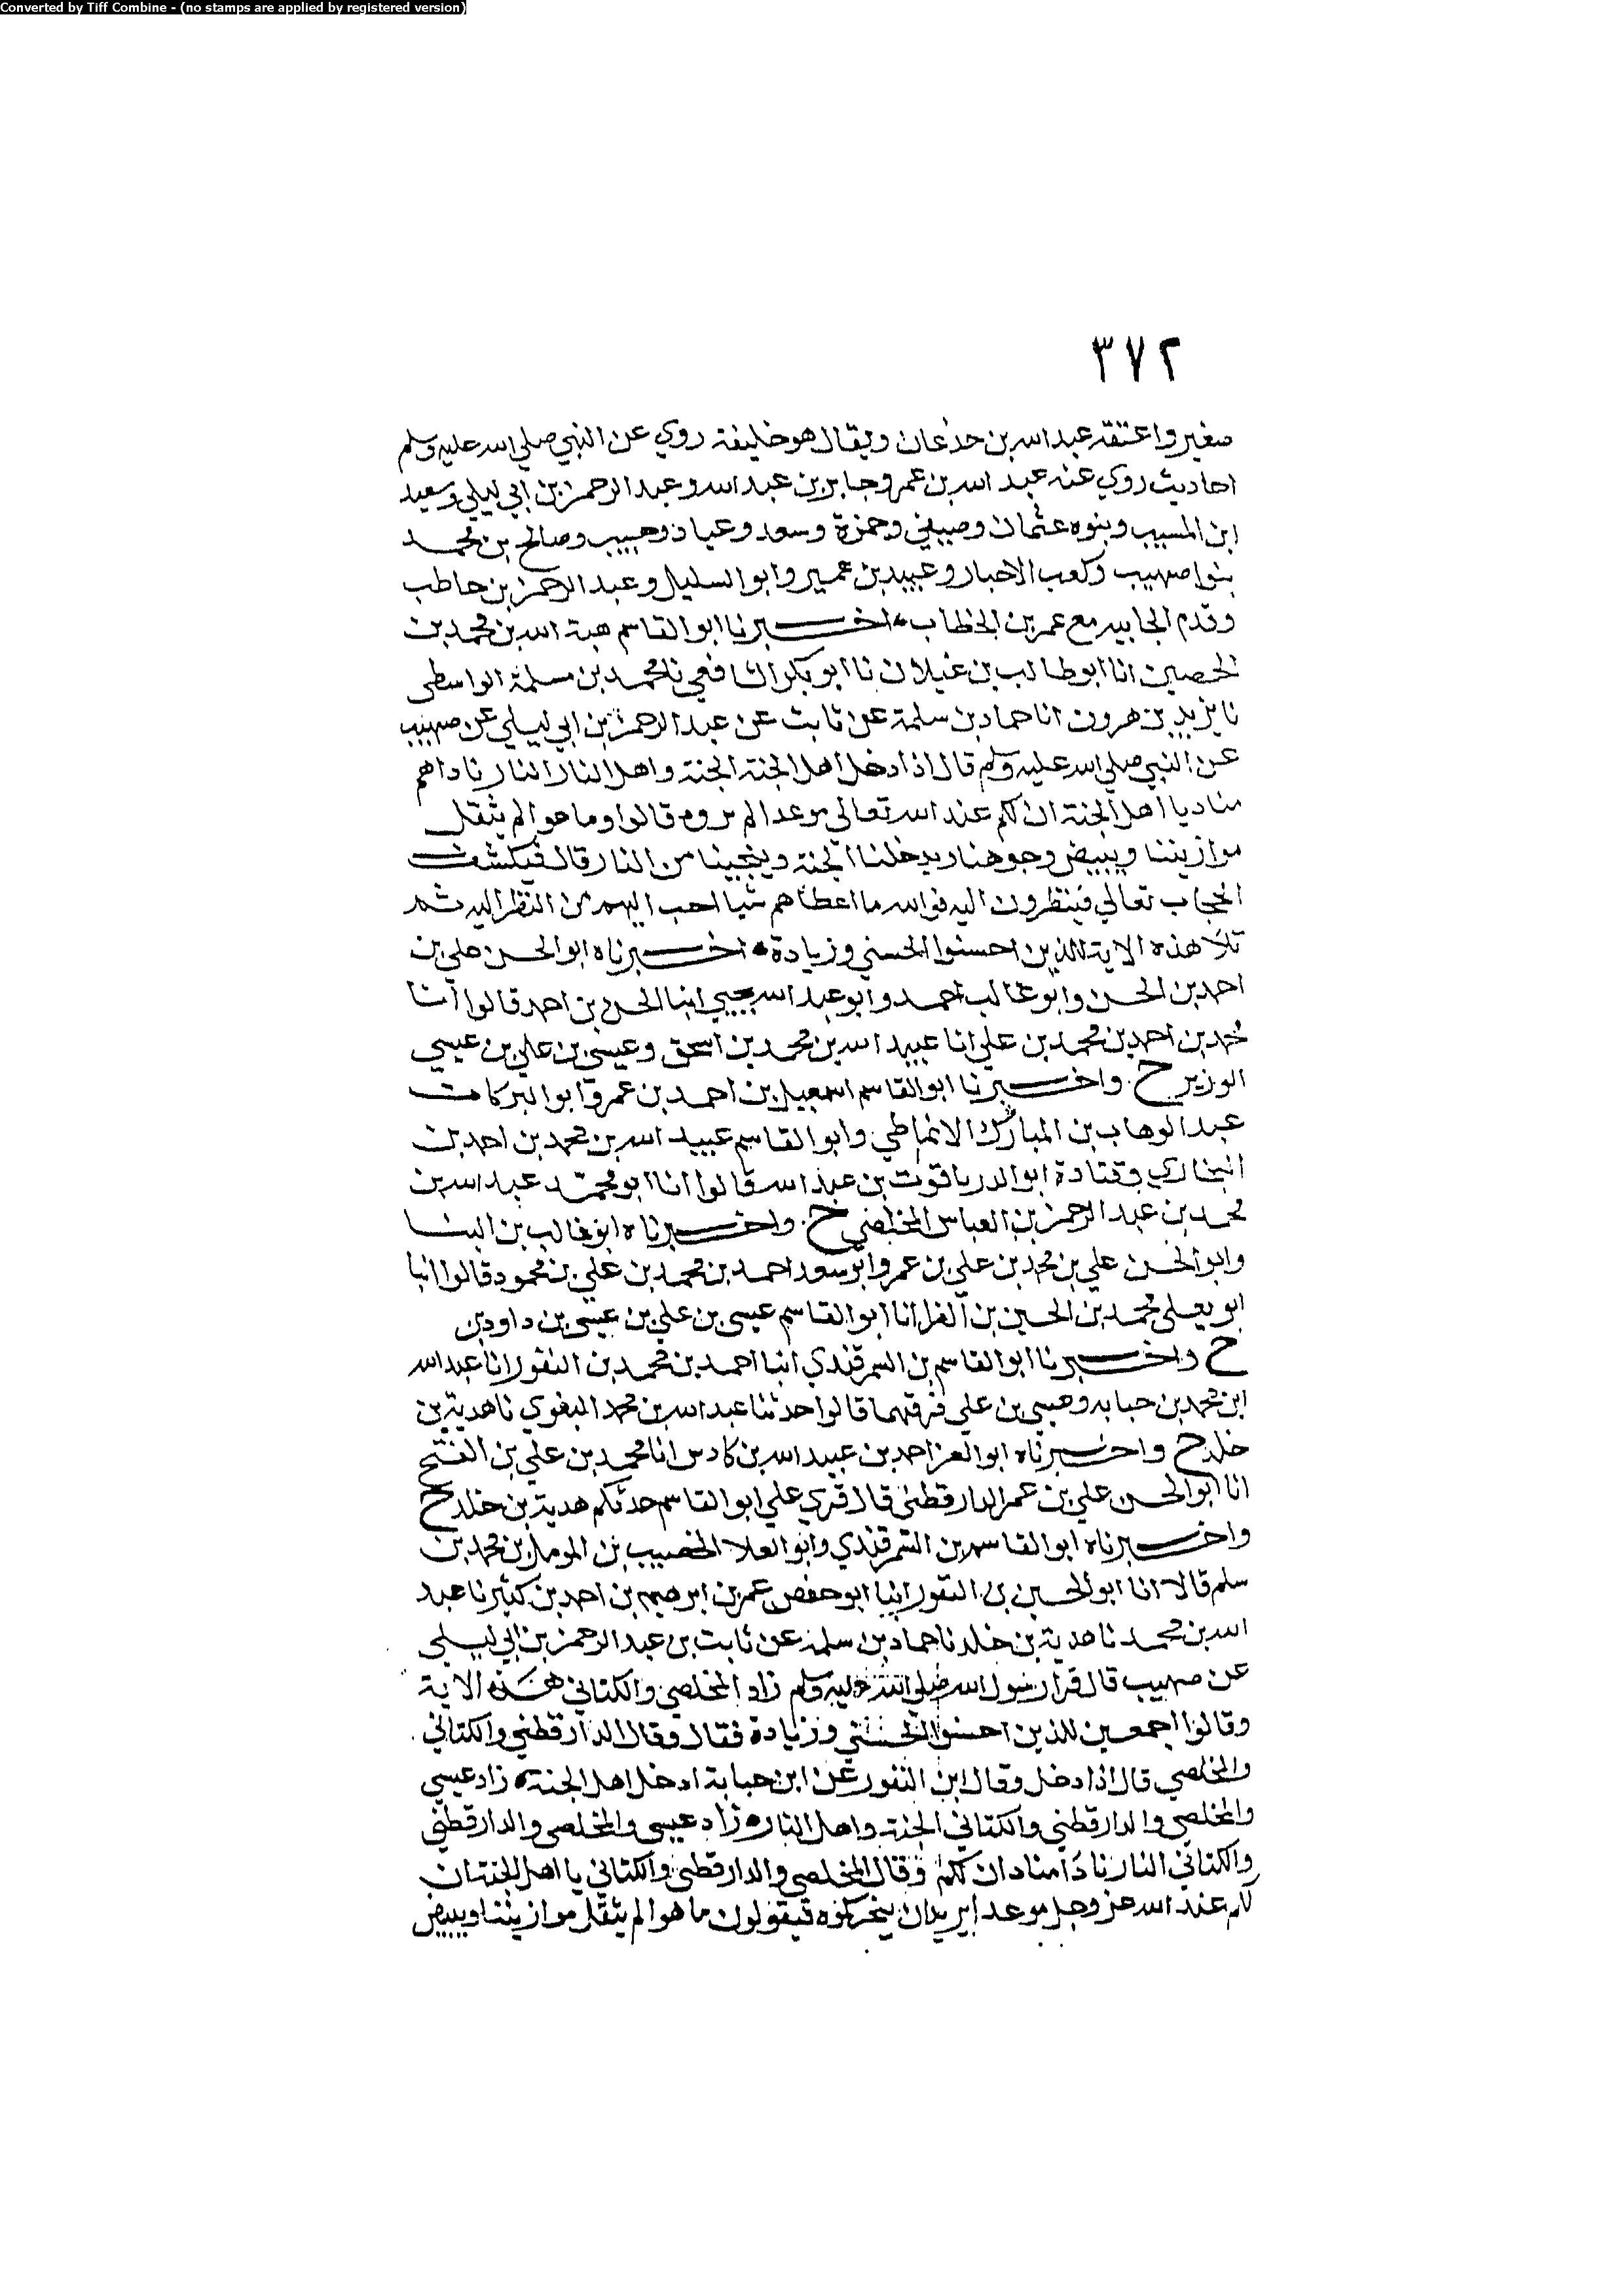 Converted by Tiff Combine - (no stamps are applied by registered version)
٣٧٢
صغير واعتقه عبد الله بن جدعان ويقال هو خليفة روي عن النبي صلي الله عليه وسلم
احاديث روي عنه عبد الله بن عمر وجابر بن عبد الله وعبد الرحمن بن ابي ليلي وسعيد
ابن المسيب وبنوه عثمان وصيفي وحمزة وسعد وعباد وحبيب وصالح بن محمد
بنوا صهيب وكعب الاحبار وعبيد بن عمير وابو السليل وعبد الرحمن بن حاطب
وقدم الجابيه مع عمر بن الخطاب اخبرنا ابو القاسم هبة الله بن محمد بن
الحصين انا ابو طالب بن غيلان نا ابو بكر الشافعي نا محمد بن مسلمة الواسطي
نا يزيد بن هرون انا حماد بن سلمة عن ثابت عن عبد الرحمن بن ابي ليلي عن صهيب
عن النبي صلي الله عليه وسلم قال اذا دخل اهل الجنة الجنة واهل النار النار ناداهم
مناد يا اهل الجنة ان لكم عند الله تعالي موعدا لم تروه قالوا وما هو الم يثقل
موازيننا ويبيض وجوهنا ويدخلنا الجنة وينجينا من النار قال فيكشف
الحجاب تعالي فينظرون اليه فوالله ما اعطاهم شيا احب اليهم من النظر اليه ثم
تلا هذه الاية للذين احسنوا الحسني وزيادة اخبرناه ابو الحسن علي بن
احمد بن الحسن وابو غالب احمد وابو عبد الله يحيي ابنا الحسن بن احمد قالوا انا
محمد بن احمد بن محمد بن علي انا عبيد الله بن محمد بن اسحق وعيسي بن علي بن عيسي
الوزير ح واخبرنا ابو القاسم اسمعيل بن احمد بن عمر وابو البركات
عبد الوهاب بن المبارك الانماطي وابو القاسم عبيد الله بن محمد بن احمد بن
البخاري وقتادة ابو الدر ياقوت بن عبد الله قالوا انا ابو محمد عبد الله بن
محمد بن عبد الرحمن بن العباس المخلصي ح واخبرناه ابو غالب بن البنا
وابو الحسن علي بن محمد بن علي بن عمر وابو سعد احمد بن محمد بن علي بن محمود قالوا انبا
ابو يعلي محمد بن الحسين بن الفرا انا ابو القاسم عيسي بن علي بن عيسي بن داود بن
ح واخبرنا ابو القاسم بن السمرقندي انبا احمد بن محمد بن النقور انا عبد الله
ابن محمد بن حبابه وعيسي بن علي فرقهما قالوا حدثنا عبد الله بن محمد البغوي نا هدبة بن
خلد ح واخبرناه ابو العز احمد بن عبيد الله بن كادس انا محمد بن علي بن الفتح
انا ابو الحسن علي بن عمر الدارقطني قال قري علي ابو القاسم حدثكم هدبة بن خلد ح
واخبرناه ابو القاسم بن السمرقندي وابو العلا الخصيب بن المومل بن محمد بن
سلم قالا انا ابو الحسين بن النقور انبا ابو حفص عمر بن ابرهيم بن احمد بن كثير نا عبد
الله بن محمد نا هدبة بن خلد نا حماد بن سلمة عن ثابت بن عبد الرحمن بن ابي ليلي
عن صهيب قال قرا رسول الله صلي الله عليه وسلم زاد المخلصي والكتاني هذه الاية
وقالوا اجمعين للذين احسنوا الحسني وزيادة فقال وقال الدارقطني والكتاني
والمخلصي قال اذا دخل وقال ابن النقور عن ابن حبابة ادخل اهل الجنة زاد عيسي
والمخلصي والدارقطني والكتاني الجنة واهل النار زاد عيسي والمخلصي والدارقطني
والكتاني النار نادا مناد ان لكم وقال المخلصي والدارقطني والكتاني يا اهل الجنة ان
لكم عند الله عز وجل موعدا يريد ان ينجزكموه فيقولون ما هو الم يثقل موازيننا ويبيض